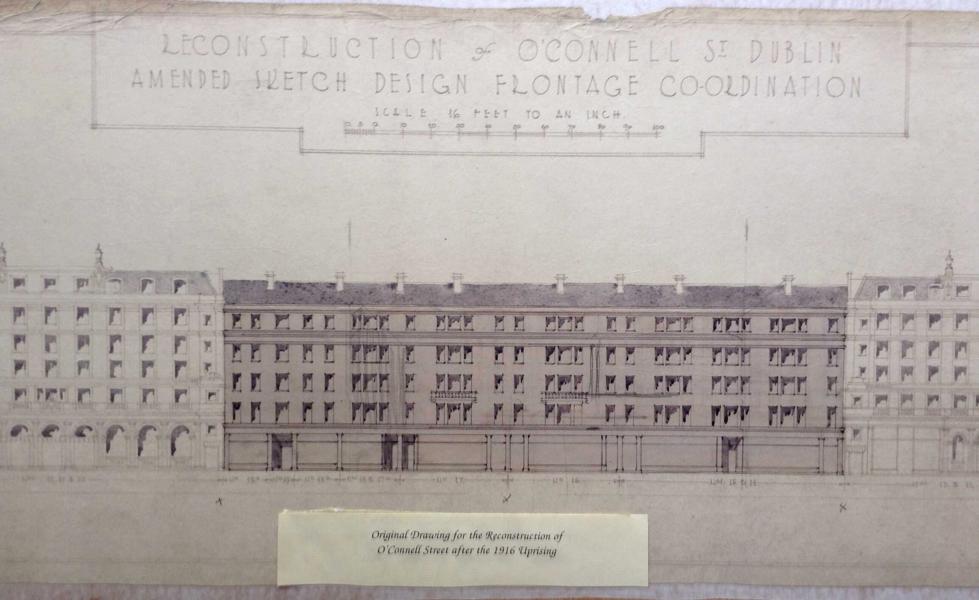 RECONSTRUCTION of O'CONNELL ST DUBLIN
AMENDED SKETCH DESIGN FRONTAGE CO-ORDINATION
SCALE 16 FEET TO AN INCH.
Original Drawing for the Reconstruction of
O'Connell Street after the 1916 Uprising